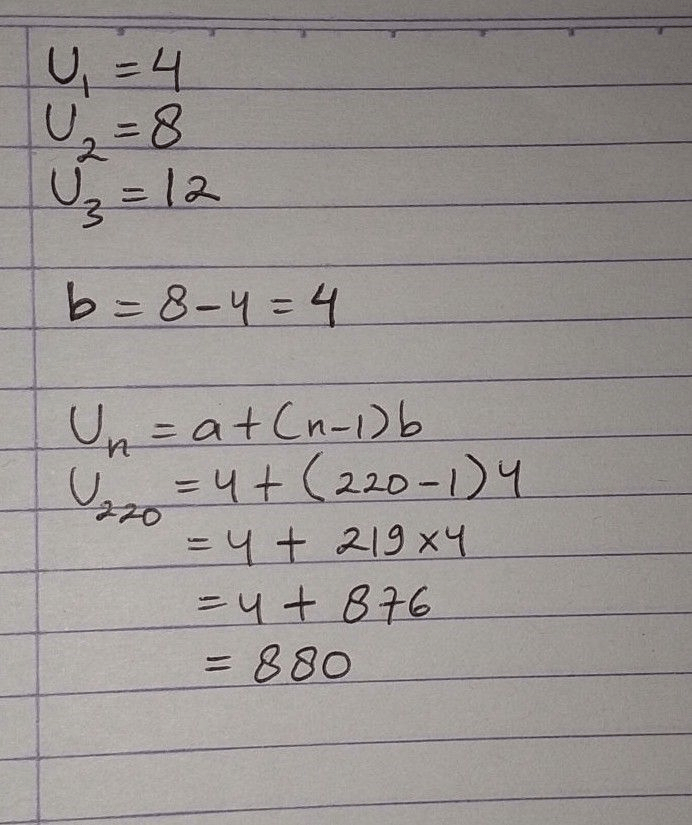 U₁ = 4
U₂ = 8
U₃ = 12
b = 8 - 4 = 4
Uₙ = a + (n-1)b
U₂₂₀ = 4 + (220-1)4
= 4 + 219 × 4
= 4 + 876
= 880